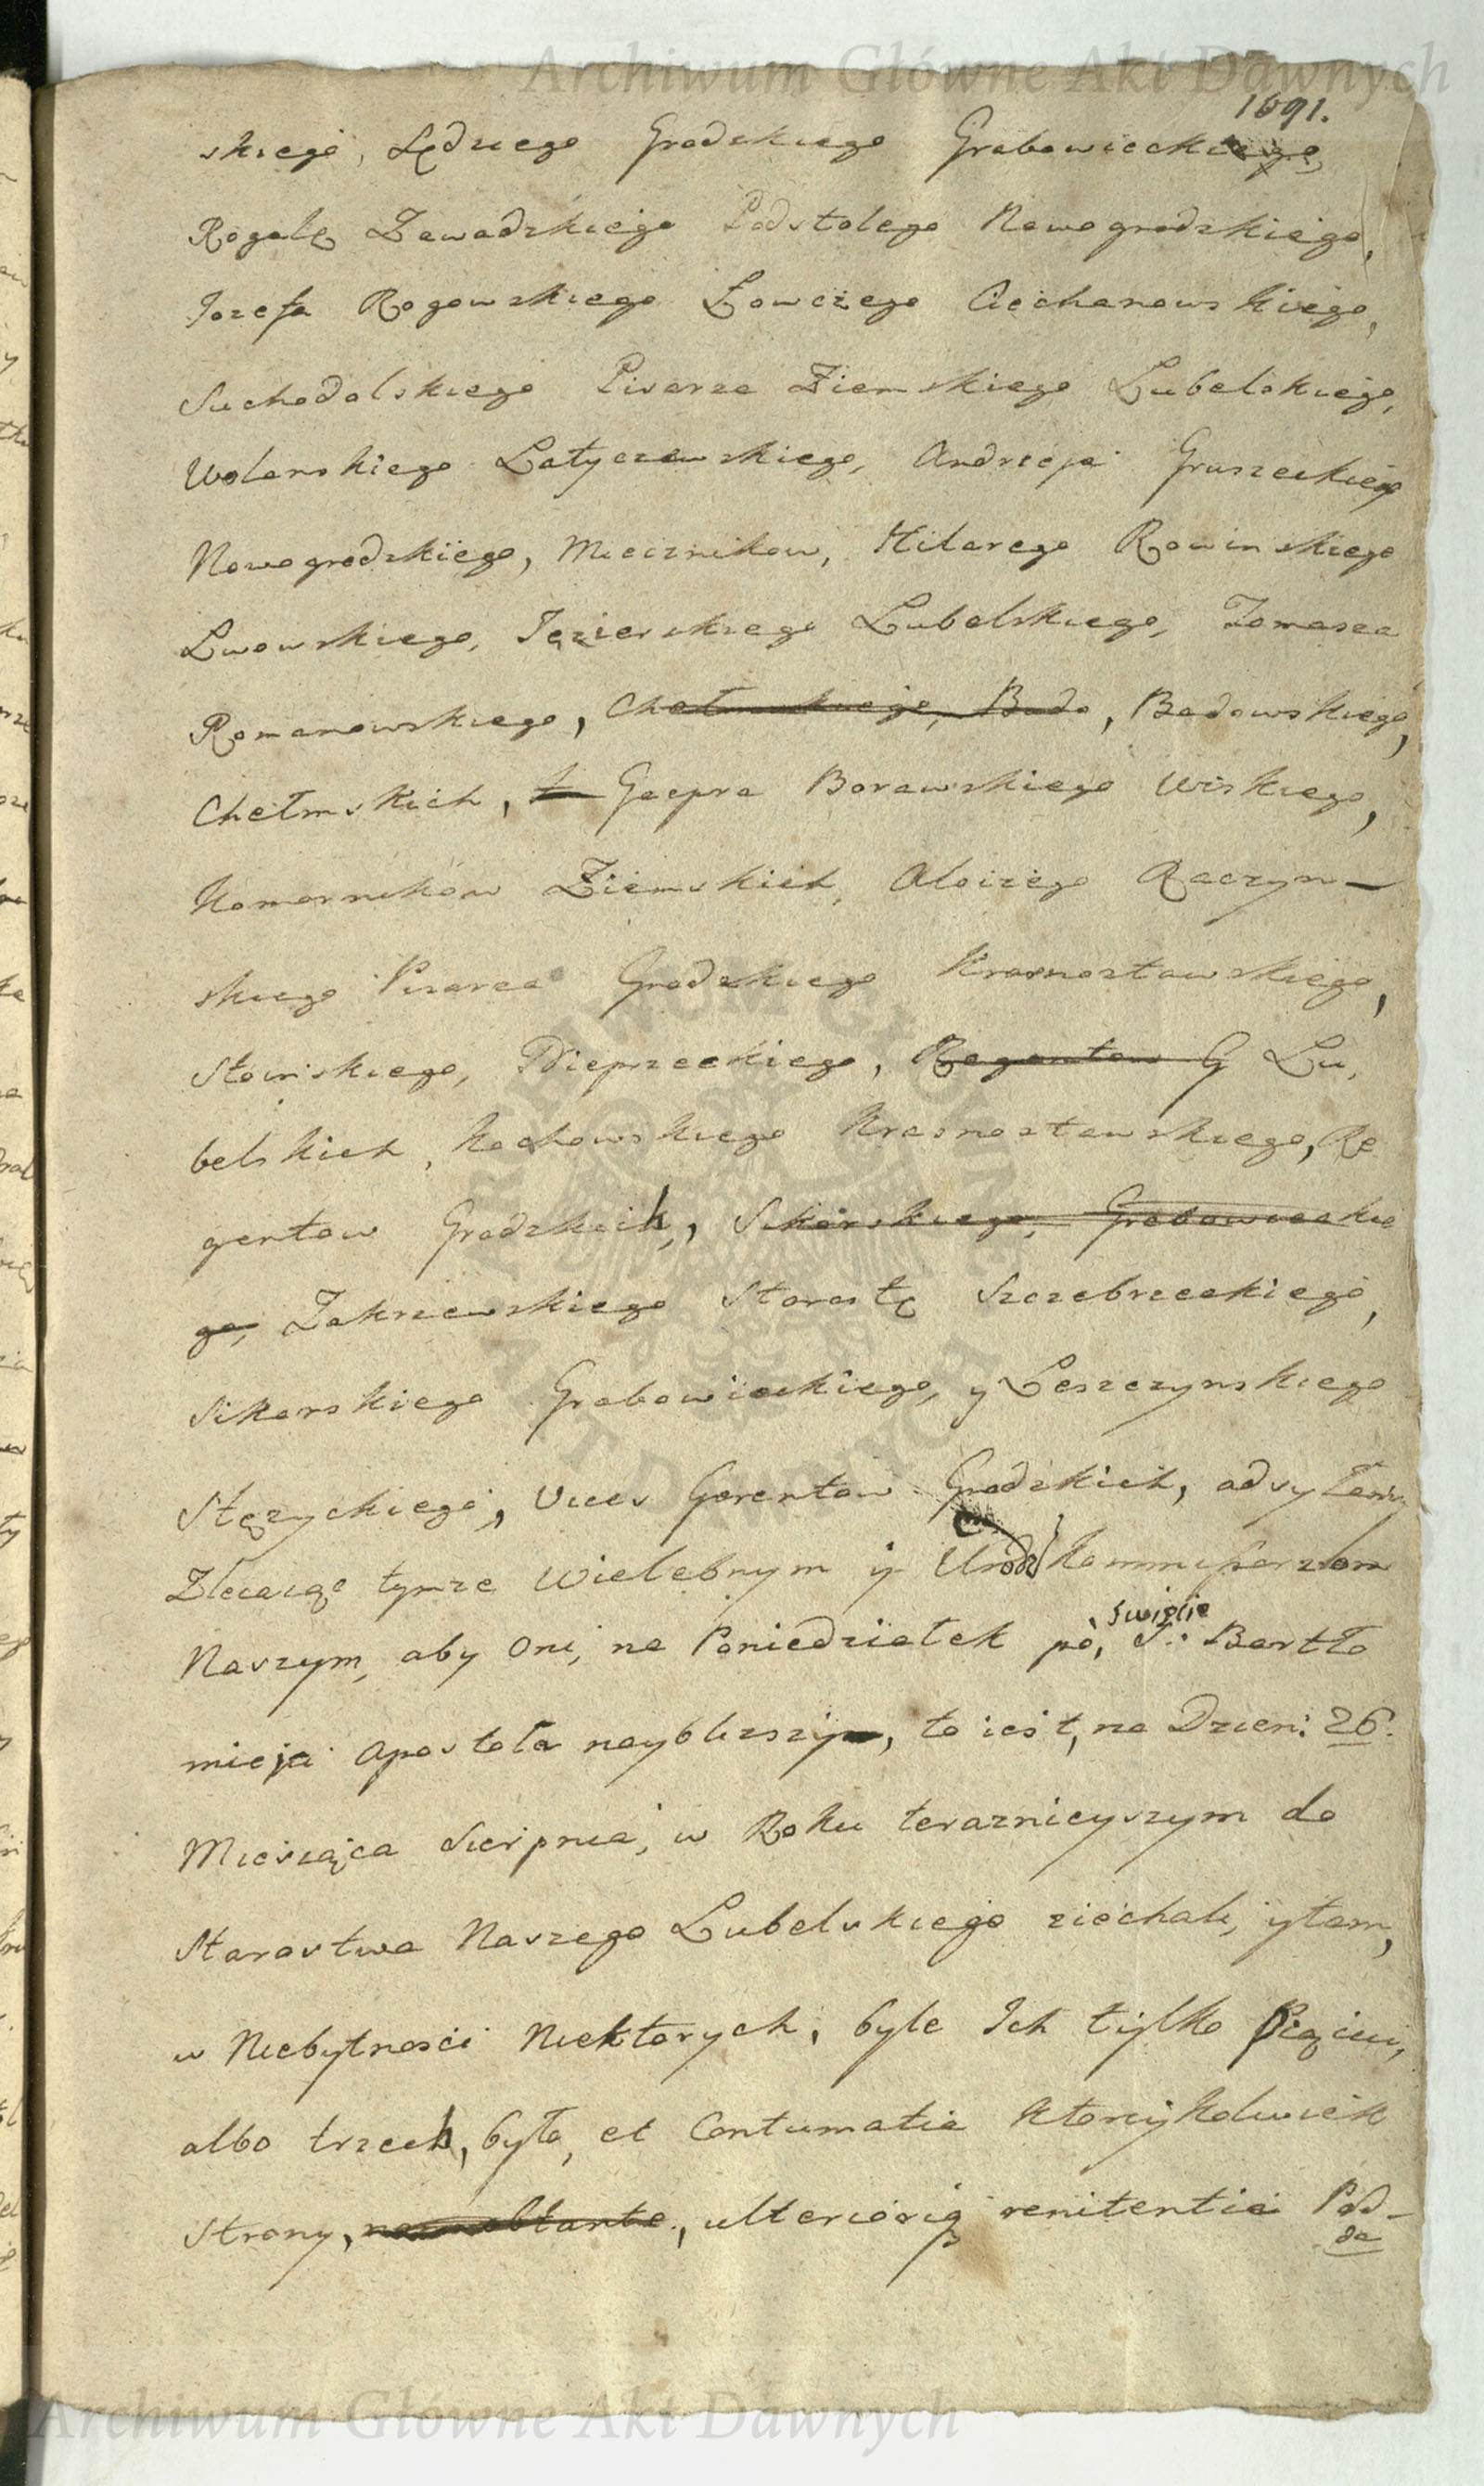 Archiwum Główne Akt Dawnych
1691.
skiego, Sędziego Grodzkiego Grabowieckiego,
Rogalę Zawadzkiego Podstolego Nowogrodzkiego,
Jozefa Rogowskiego Łowczego Ciechanowskiego,
Suchodolskiego Pisarza Ziemskiego Lubelskiego,
Wolanskiego Latyczewskiego, Andrzeja Gruszeckiego
Nowogrodzkiego, Miecznikow, Hilarego Rowinskiego
Lwowskiego, Jęzierskiego Lubelskiego, Tomasza
Romanowskiego, Chełmskiego, Bado, Badowskiego,
Chełmskich, Gacpra Borawskiego Wiskiego,
Komornikow Ziemskich, Aloizego Raczyn-
skiego Pisarza Grodzkiego Krasnostawskiego,
Słoinskiego, Dieprzeckiego, Regentow G Lu,
belskich, Kochowskiego Krasnostawskiego, Re
gentow Grodzkich, Sikorskiego, Grabowieckie
go, Zakrzewskiego Starostę Szczebrzeskiego,
Sikorskiego Grabowieckiego, y Leszczynskiego
Stęzyckiego, Vices Gerentow Grodzkich, odsyłamy
Zlecaiąc tymze Wielebnym y Urodz Kommissarzom
Naszym, aby Oni, na Poniedziałek po, S: Bartło
święcie
mieja Apostoła nayblizszy, to iest, na Dzien: 26.
Miesiąca Sierpnia, w Roku teraznieyszym do
Starostwa Naszego Lubelskiego ziechali, y tam,
w Niebytnosci Niektorych, byle Ich tylko Pięciu,
albo trzech, było, et Contumatia Ktoreykolwiek
Strony, non obstante, ulteriorią renitentia Pod-
da
Archiwum Główne Akt Dawnych